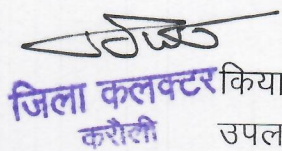 जिला कलक्टर किया
करौली उपल